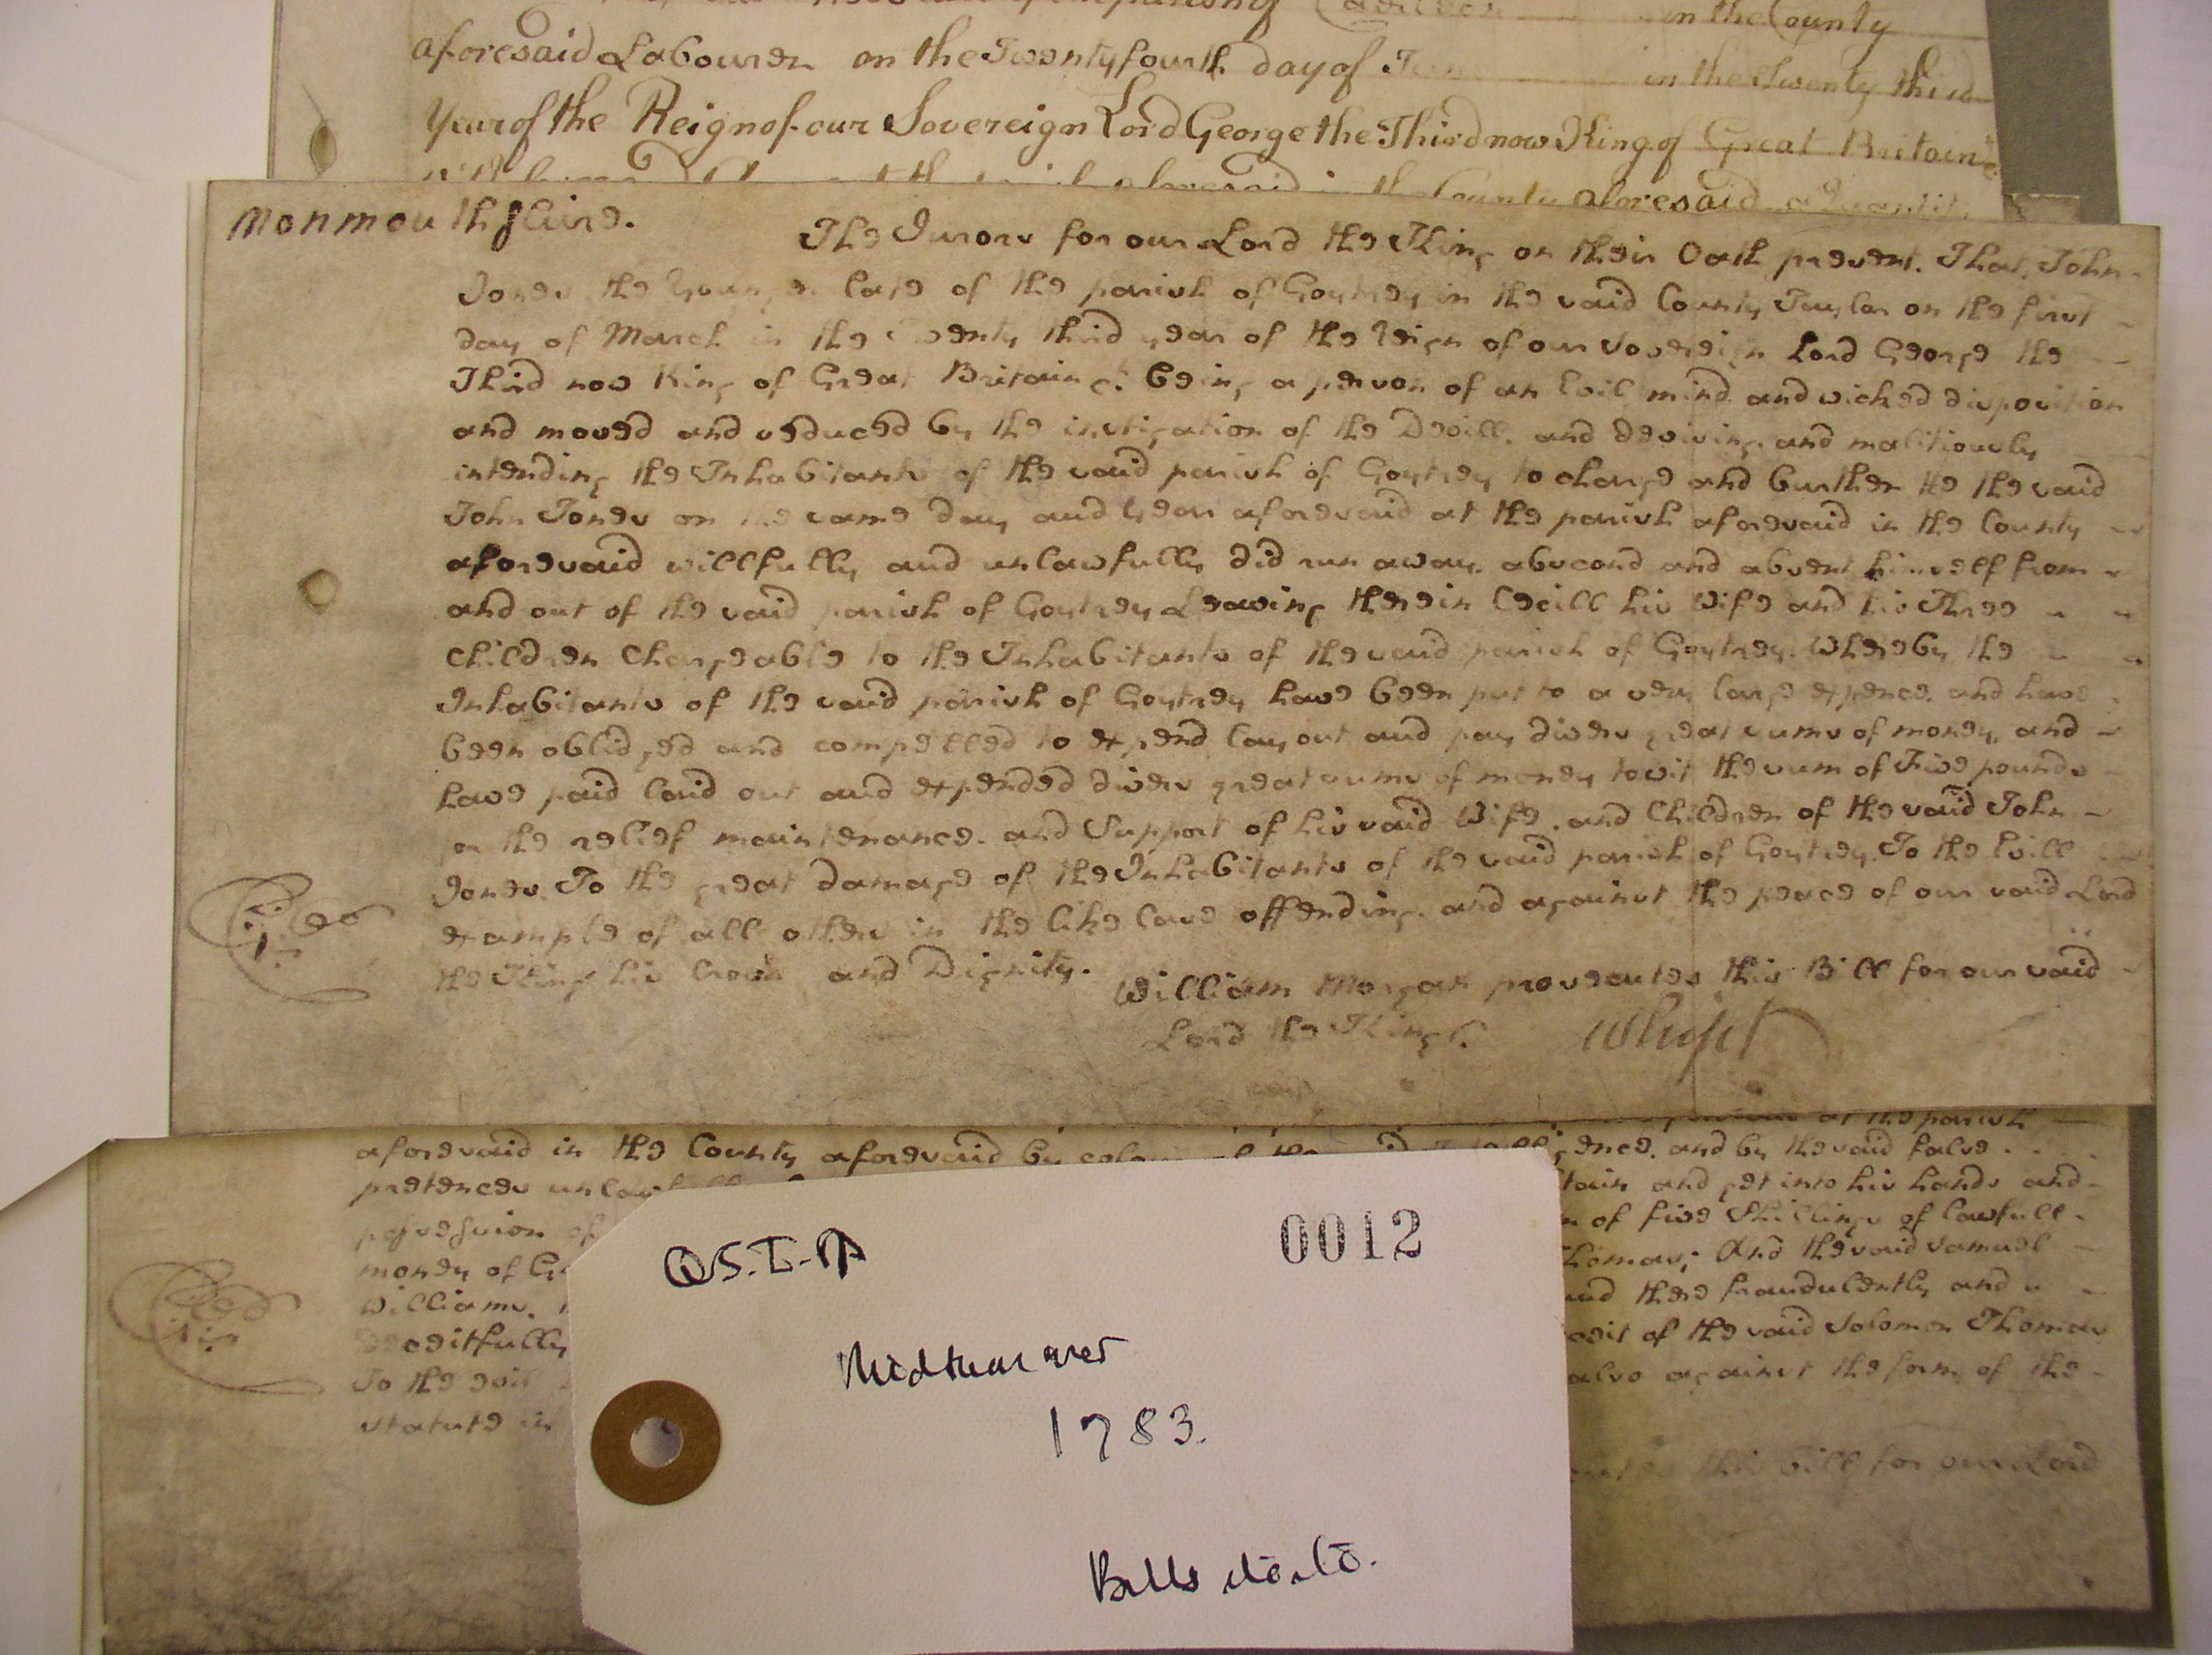 in the County
aforesaid Labourer on the Twenty fourth day of in the Twenty third
Year of the Reign of our Sovereign Lord George the Third now King of Great Britain &c.
the County aforesaid a Quantity
Monmouthshire. The Jurors for our Lord the King on their Oath present. That, John
Jones the Younger late of the parish of Goytrey in the said County Taylor on the first
day of March in the Twenty third year of the Reign of our Sovereign Lord George the
Third now King of Great Britain &c. being a person of an Evil mind and wicked disposition
and moved and seduced by the instigation of the Devill. and devising. and malitiously
intending the Inhabitants of the said parish of Goytrey to charge and burthen He the said
John Jones on the same day and Year aforesaid at the parish aforesaid in the County
aforesaid willfully and unlawfully did run away. abscond and absent himself from
and out of the said parish of Goytrey Leaving therein Cecill his Wife and his Three
Children Chargeable to the Inhabitants of the said parish of Goytrey. Whereby the
Inhabitants of the said parish of Goytrey have been put to a very large expence. and have
been oblidged and compelled to expend lay out and pay divers great sums of money. and
have paid laid out and expended divers great sums of money towit the sum of Five pounds
for the relief maintenance. and Support of his said Wife. and Children of the said John
Jones. To the great damage of the Inhabitants of the said parish of Goytrey. To the Evill
example of all others in the like Case offending. and against the peace of our said Lord
the King his Crown and Dignity.
William Morgan prosecutes this Bill for our said
Lord the King &c.
at the parish
aforesaid in the County aforesaid by and by the said false
pretences and get into his hands and
possession of of five Shillings of lawfull
money of Thomas; And the said Samuel
Williams. and there fraudulently and
Deceitfully of the said Solomon Thomas
To the evil also against the form of the
statute in
this Bill for our Lord
0012
QS.I-
Midsummer
1783.
Bills